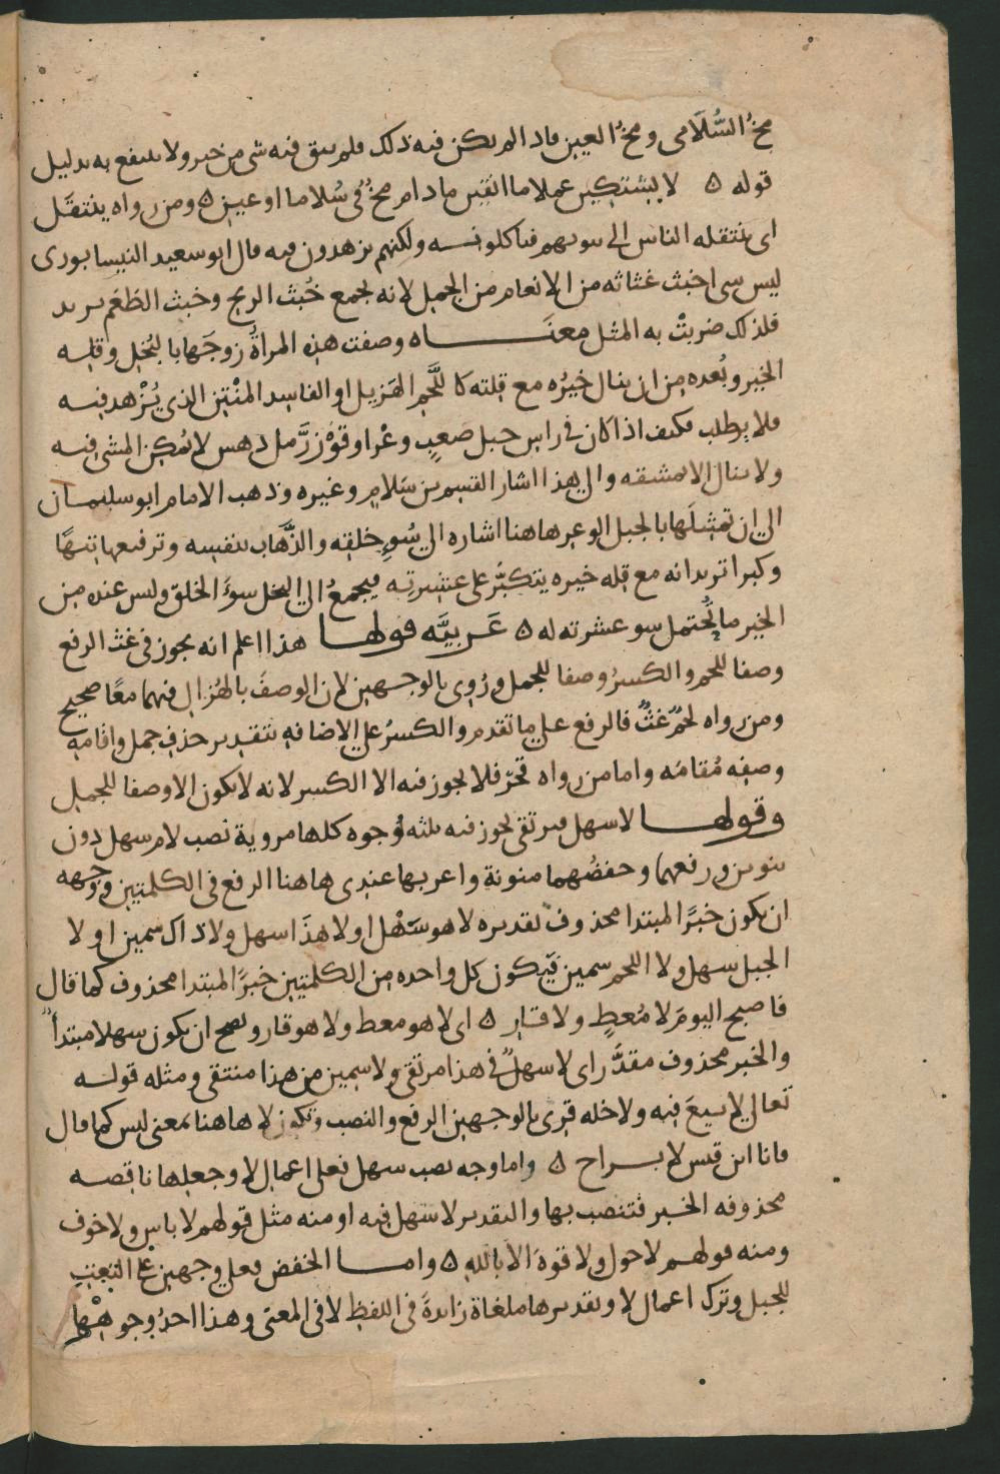 مخ السُّلَامى ومخ العين فاذا لم يكن فيه ذلك فلم يبق فيه شى من خير ولا ينتفع به بدليل
قوله ه لا يشتكين عملا ما انقين مادام مخ فى سُلاما او عين ه ومن رواه ينتقَل
اى ينتقله الناس الى بيوتهم فياكلونه ولكنهم يزهدون فيه قال ابو سعيد النيسابورى
ليس شى اخبث غثاثه من الانعام من الجمل لانه يجمع خُبث الريح وخبث الطَعَم يريد
فلذلك ضربتْ به المثل معنـــاه وصفت هذه المراةُ زوجَها بالبُخل وقله
الخير وبُعده من ان ينال خيرُه مع قلته كا للَّحم الهَزيل او الفاسد المنْتن الذى يُزْهد فيه
فلا يطلب فكيف اذا كان فى راس جبل صَعبٍ وعْر او قَوْز رَّمل دهس لا يمُكِن المشى فيه
ولا ينال الا بمشقه والى هذا اشار القسم بن سَلام وغيره وذهب الامام ابو سليمان
الى ان تمثيلَها بالجبل الوعر هاهنا اشاره الى سُوء خلقه والذَّهاب بنفسه وترفعها تيهًا
وكبرا تريد انه مع قله خيره يتكبَّر على عشيرته فيجمعُ الى البخل سوءَ الخلق وليس عنده من
الخير ما يُحتمل سو عشرته له ه عَربيَّه قولها هذا اعلم انه يجوز فى غث الرفع
وصفا للحم والكسرُ وصفا للجمل ورُوى بالوجهين لان الوصفَ بالهُزال فيهما معًا صحيح
ومن رواه لحمٌ غثٌ فالرفع على ما تقدم والكسرُ على الاضافه بتقدير حذف جمل واقامه
وصفه مُقامَه واما من رواه قحرٍ فلا يجوز فيه الا الكسر لانه لا يكون الا وصفا للجمل
وقولهـــا لا سهل فيرتقى يجوز فيه ثلثه وُجوه كلها مروية نصب لام سهل دون
تنوين ورفعهما وخفضُهما منونة واعربها عندى هاهنا الرفع فى الكلمتين ووجهه
ان يكون خبرًا لمبتدا محذوف تقديره لا هو سَهْل او لا هذَا سهل ولا ذاك سمين او لا
الجبل سهل ولا اللحم سمين فيكون كل واحده من الكلمتين خبرًا لمبتدا محذوف كما قال
فاصبح اليومَ لا مُعطٍ ولا قارٍ ه اى لا هو معط ولا هو قار ويصح ان يكون سهلا مبتدأً
والخبر محذوف مقدَّر اى لا سهلٌ فى هذا مرتقى ولا سمين من هذا منتقى ومثله قوله
تعالى لا بيعَ فيه ولا خله قرى بالوجهين الرفع والنصب وتكون لا هاهنا بمعنى ليس كما قال
فانا ابن قيس لا بــراح ه واما وجه نصب سهل فعلى اعمال لا وجعلها ناقصه
محذوفه الخبر فتنصب بها والتقدير لا سهل فيه او منه مثل قولهم لا باس ولا خوف
ومنه قولهم لا حول ولا قوة الا بالله ه وامـــا الخفض فعلى وجهين على النعت
للجبل وترك اعمال لا وتقديرها ملغاة زائدةً فى اللفظ لا فى المعنى وهذا احدُ وجوهها